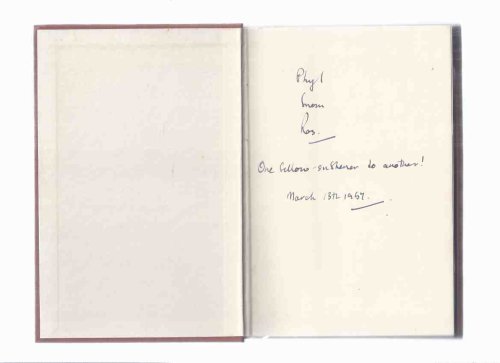 Phyl
from
Ros.
One fellow-sufferer to another!
March 13th 1957.